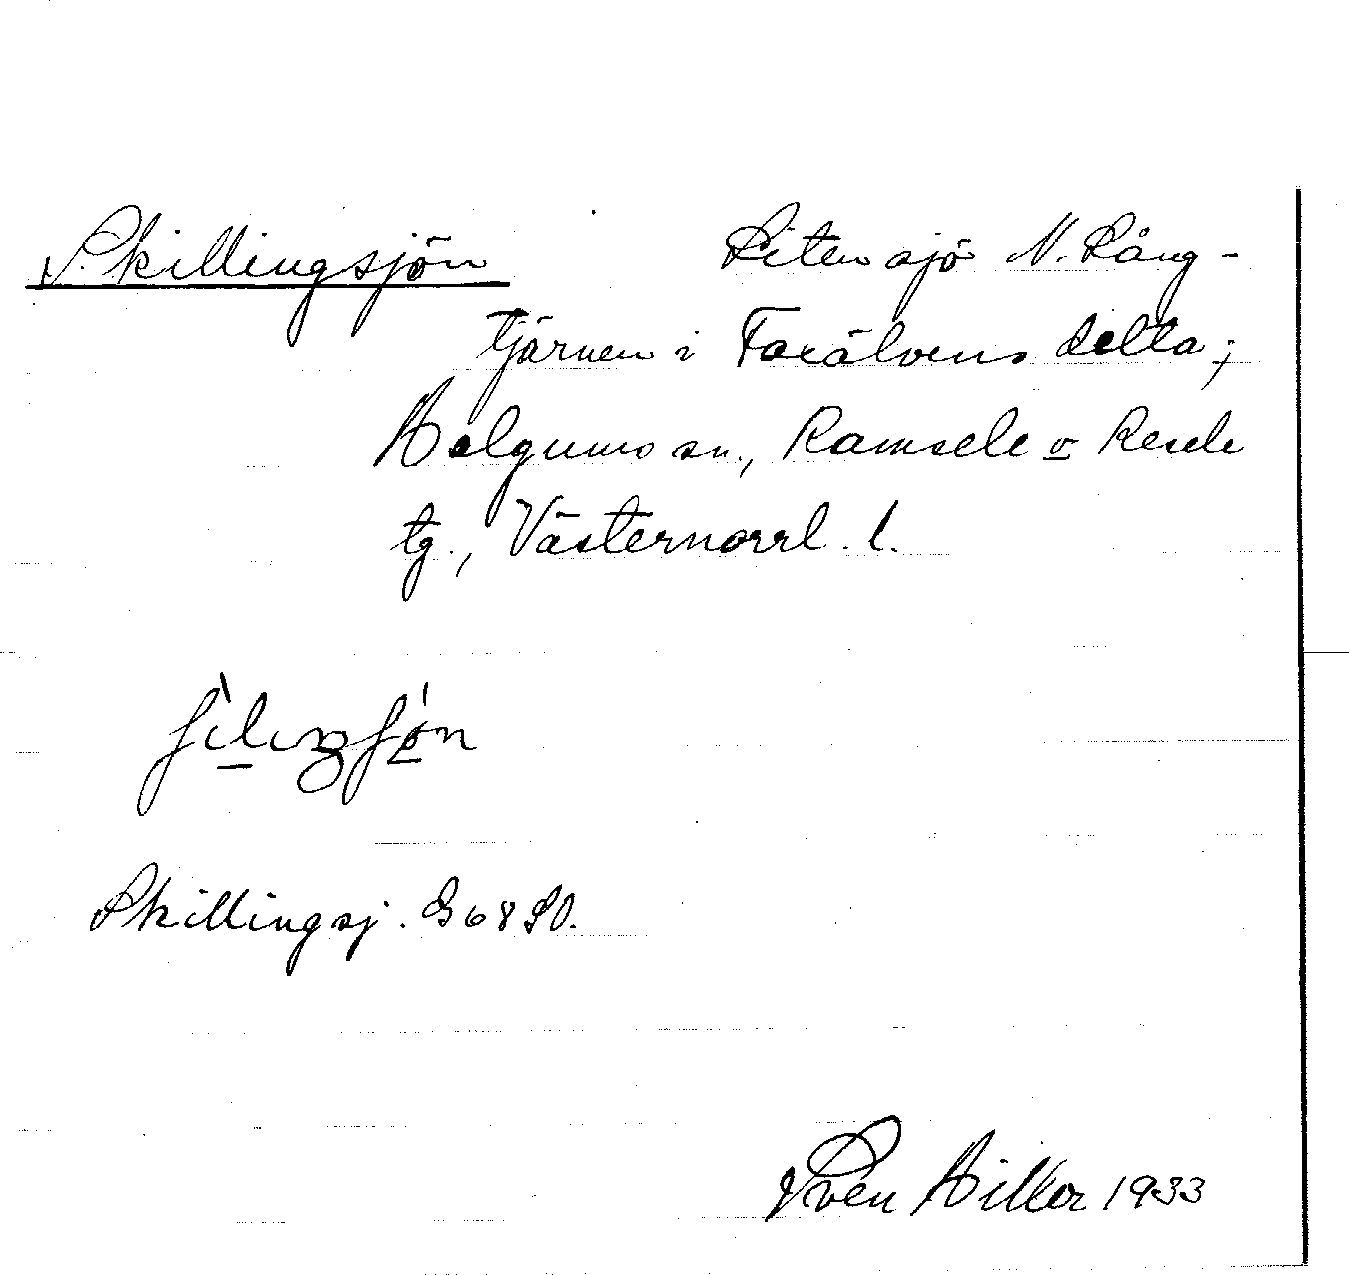 Skillingsjön Liten sjö N. Lång-
tjärnen i Faxälvens delta;
Helgums sn., Ramsele o Resele
tg., Västernorrl. l.
Skillingsj. G68SO.
Sven Hillor 1933